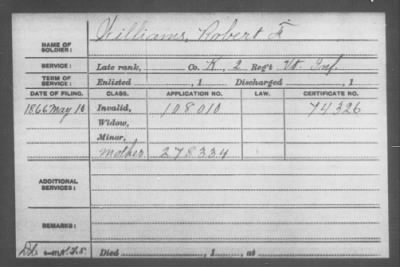 NAME OF SOLDIER: Williams, Robert F
SERVICE: Late rank, Co. K, 2 Reg't Vt. Inf.
TERM OF SERVICE: Enlisted , 1 Discharged , 1
DATE OF FILING. CLASS. APPLICATION NO. LAW. CERTIFICATE NO.
1866 May 10 Invalid, 108010 74326
Widow,
Minor,
Mother 278334
ADDITIONAL SERVICES:
REMARKS:
Died , 1 , at